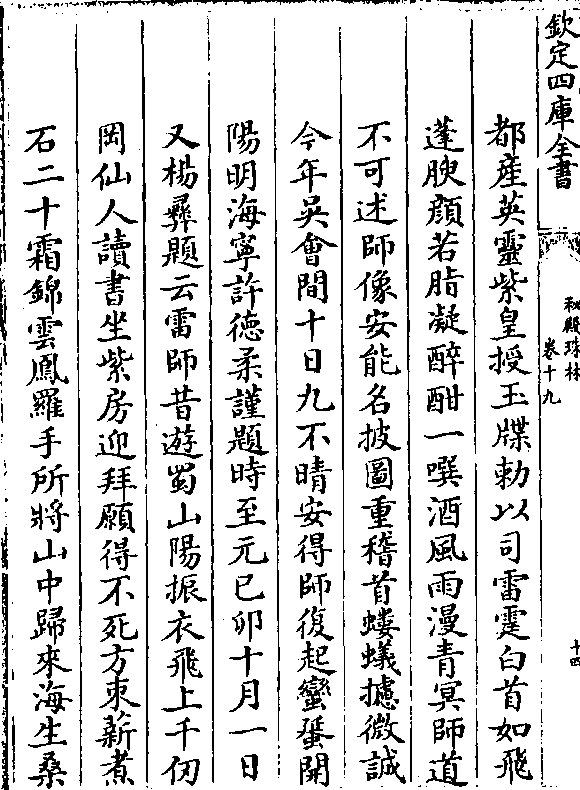 欽定四庫全書
秘殿珠林
卷十九
十四
都産英靈紫皇授玉牒勅以司雷霆白首如飛
蓬腴顔若脂凝醉酣一噀酒風雨漫青冥師道
不可述師像安能名披圖重稽首螻蟻攄微誠
今年吳會間十日九不晴安得師復起蠻蜑開
陽明海寧許徳柔謹題時至元己卯十月一日
又楊彛題云雷師昔遊蜀山陽振衣飛上千仞
岡仙人讀書坐紫房迎拜願得不死方束薪煮
石二十霜錦雲鳳羅手所將山中歸來海生桑